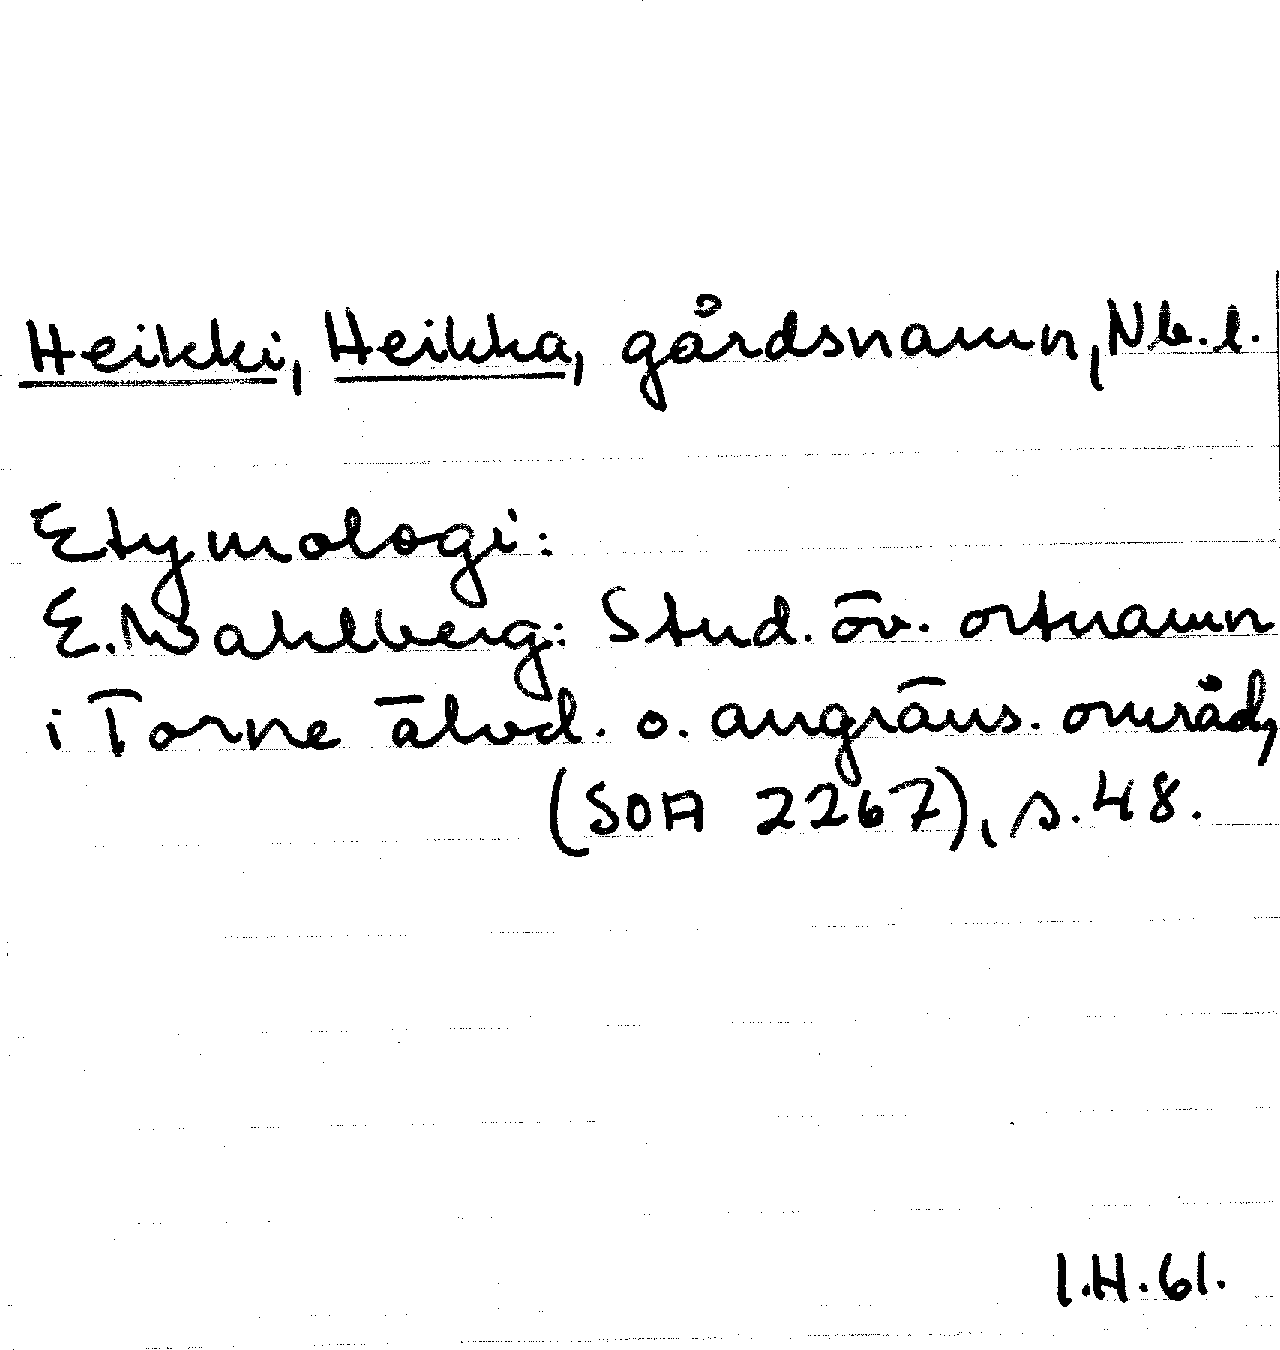 Heikki, Heikka, gårdsnamn, Nb. l.
Etymologi:
E. Wahlberg: Stud. öv. ortnamn
i Torne älvd. o. angräns. område,
(SOA 2267), s. 48.
I.H. 61.